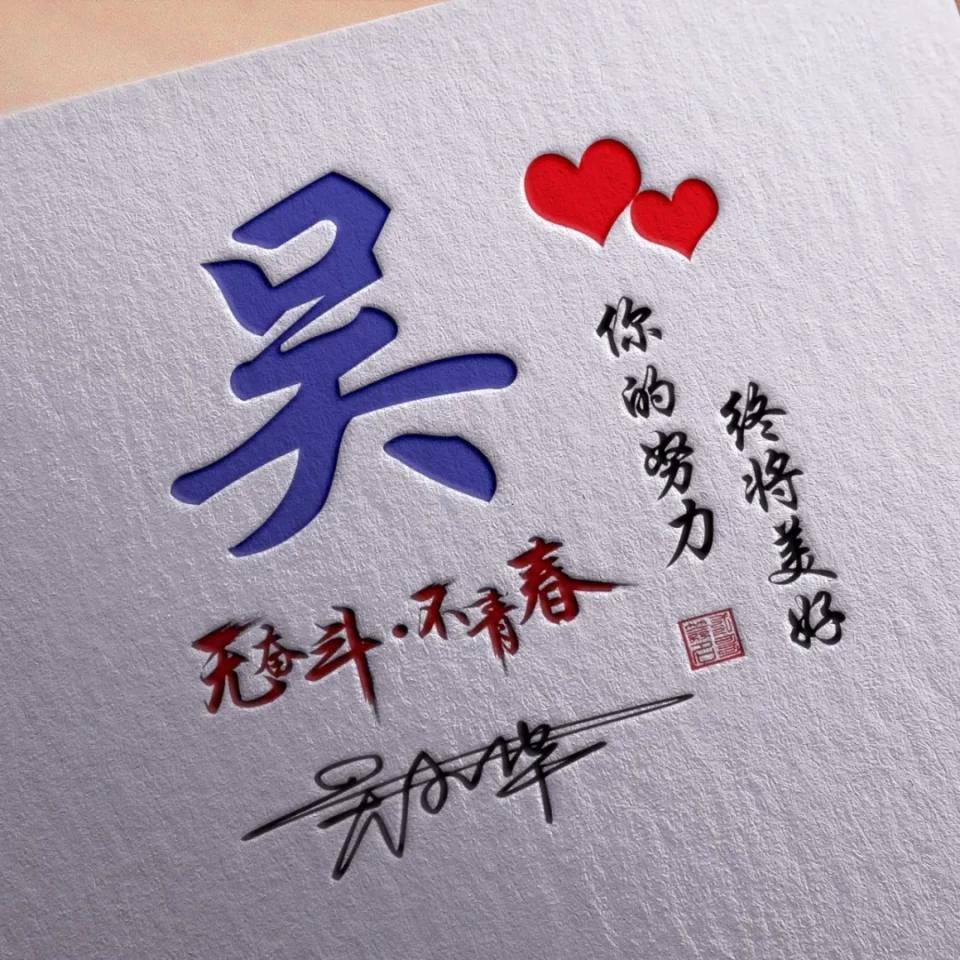 吴
你的努力
终将美好
无奋斗·不青春